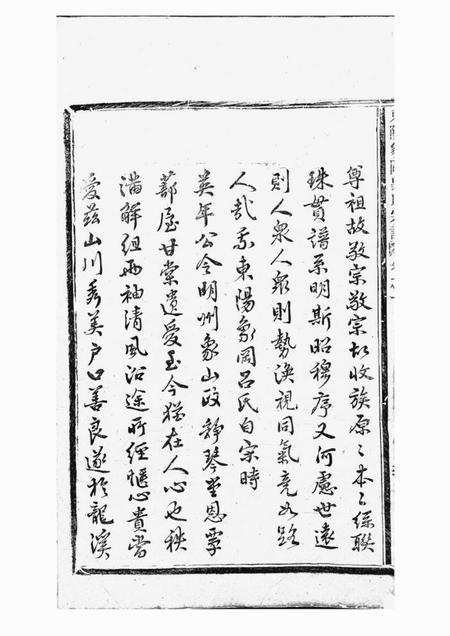 尊祖故敬宗敬宗故收族原〻本〻綿聯
珠貫譜系明斯昭穆序又何慮世遠
則人衆人衆則勢渙視同氣竟如路
人哉我東陽象岡呂氏自宋時
英年公令明州象山政静琴堂恩覃
蔀屋甘棠遺愛至今猶在人心也秩
滿解組兩袖清風沿途所經愜心貴當
愛兹山川秀美戶口善良遂於龍溪